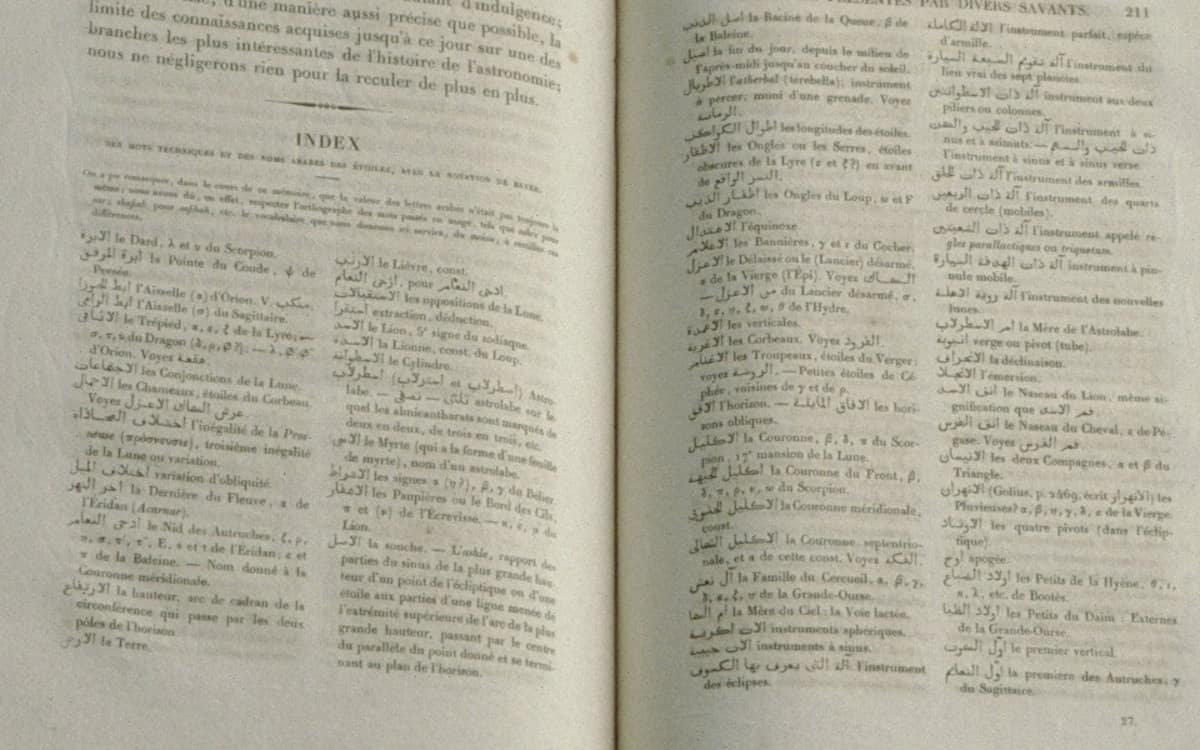 d'indulgence;
d'une manière aussi précise que possible, la
limite des connaissances acquises jusqu'à ce jour sur une des
branches les plus intéressantes de l'histoire de l'astronomie;
nous ne négligerons rien pour la reculer de plus en plus.
INDEX
DES MOTS TECHNIQUES ET DES NOMS ARABES DES ÉTOILES, AVEC LA NOTATION DE BAYER.
On a pu remarquer, dans le cours de ce mémoire, que la valeur des lettres arabes n'était pas toujours la
même; nous avons dû, en effet, respecter l'orthographe des mots passés en usage, tels que
pour etc. le vocabulaire que nous donnons ici servira, du moins, à rectifier ces
différences.
الابرة le Dard, λ et υ du Scorpion.
ابرة المرفق la Pointe du Coude, ψ de
Persée.
ابط الجوزا l'Aisselle (α) d'Orion. V. منكب.
ابط الرامى l'Aisselle (σ) du Sagittaire.
الاثافى le Trépied, de la Lyre;
du Dragon
d'Orion. Voyez هقعة.
الاجتماعات les Conjonctions de la Lune.
الاجمال les Chameaux, étoiles du Corbeau.
Voyez عرش السماك الاعزل.
اختلاف المحاذاة l'inégalité de la Pros-
neuse troisième inégalité
de la Lune ou variation.
اختلاف الميل variation d'obliquité.
اخر النهر la Dernière du Fleuve, α de
l'Éridan (Acarnar).
ادحى النعام le Nid des Autruches,
de l'Éridan; ε et
π de la Baleine. — Nom donné à la
Couronne méridionale.
الارتفاع la hauteur, arc de cadran de la
circonférence qui passe par les deux
pôles de l'horison.
الارض la Terre.
الارنب le Lièvre, const.
ازحى النعام, pour ادحى.
الاستقبالات les oppositions de la Lune.
استقرا extraction, déduction.
الاسد le Lion, 5ᵉ signe du zodiaque.
الاسدة la Lionne, const. du Loup.
الاسطوانة le Cylindre.
اسطرلاب (اصطرلاب et استرلاب) Astro-
labe. — نصفى — ثلثى astrolabe sur le-
quel les almicantharats sont marqués de
deux en deux, de trois en trois, etc.
الاس le Myrte (qui a la forme d'une feuille
de myrte), nom d'un astrolabe.
الاشراط les signes α (η?), β, γ du Bélier.
الاشفار les Paupières ou le Bord des Cils,
de l'Écrevisse, — du
Lion.
الاصل la souche. — L'ashle, rapport des
parties du sinus de la plus grande hau-
teur d'un point de l'écliptique ou d'une
étoile aux parties d'une ligne menée de
l'extrémité supérieure de l'arc de la plus
grande hauteur, passant par le centre
du parallèle du point donné et se termi-
nant au plan de l'horison.
PAR DIVERS SAVANTS. 211
اصل الذنب la Racine de la Queue, β de
la Baleine.
اصيل la fin du jour, depuis le milieu de
l'après-midi jusqu'au coucher du soleil.
الاطربال l'atherbal (terebella); instrument
à percer; muni d'une grenade. Voyez
الرمانة.
اطوال الكواكب les longitudes des étoiles.
الاظفار les Ongles ou les Serres, étoiles
obscures de la Lyre (ε et ζ?) en avant
de النسر الواقع.
اظفار الذيب les Ongles du Loup, ω et F
du Dragon.
الاعتدال l'équinoxe.
الاعلام les Bannières, γ et ε du Cocher.
الاعزل le Délaissé ou le (Lancier) désarmé,
α de la Vierge (l'Épi). Voyez السماك
— من الاعزل du Lancier désarmé, σ,
θ de l'Hydre.
الاعمدة les verticales.
الاغربة les Corbeaux. Voyez القرود.
الاغنام les Troupeaux, étoiles du Verger;
voyez الروضة. — Petites étoiles de Cé-
phée, voisines de γ et de ρ.
الافق l'horizon. — الافاق المايلة les hori-
sons obliques.
الاكليل la Couronne, β, δ, π du Scor-
pion, 17ᵉ mansion de la Lune.
اكليل الجبهة la Couronne du Front, β,
du Scorpion.
الاكليل الجنوبى la Couronne méridionale,
const.
الاكليل الشمالى la Couronne septentrio-
nale, et α de cette const. Voyez الفكة.
آل نعش la Famille du Cercueil, α, β, γ,
de la Grande-Ourse.
ام السما la Mère du Ciel; la Voie lactée.
الات اكرية instruments sphériques.
الات جيبية instruments à sinus.
آلة التى يعرف بها الكسوف l'instrument
des éclipses.
الالة الكاملة l'instrument parfait, espèce
d'armille.
آلة تقويم السبعة السيارة l'instrument du
lieu vrai des sept planètes.
آلة ذات الاسطوانتين instrument aux deux
piliers ou colonnes.
آلة ذات الجيب والسمت l'instrument à si-
nus et à azimuts; — ذات الجيب والسهم
l'instrument à sinus et à sinus verse.
آلة ذات الحلق l'instrument des armilles.
آلة ذات الربعين l'instrument des quarts
de cercle (mobiles).
آلة ذات الشعبتين l'instrument appelé rè-
gles parallactiques ou triquetum.
آلة ذات الهدفة السيارة instrument à pin-
nule mobile.
آلة روية الاهلة l'instrument des nouvelles
lunes.
ام الاسطرلاب la Mère de l'Astrolabe.
انبوبة verge ou pivot (tube).
الانحراف la déclinaison.
الانجلا l'émersion.
انف الاسد le Naseau du Lion, même si-
gnification que فم الاسد.
انف الفرس le Naseau du Cheval, ε de Pé-
gase. Voyez فم الفرس.
الانيسان les deux Compagnes, α et β du
Triangle.
الانهران (Golius, p. 2469, écrit الانهراز) les
Pluvieuses? de la Vierge.
الاوتاد les quatre pivots (dans l'éclip-
tique).
اوج apogée.
اولاد الضباع les Petits de la Hyène, θ, ι,
κ, λ, etc. de Bootès.
اولاد الظبا les Petits du Daim; Externes
de la Grande-Ourse.
اول السموت le premier vertical.
اول النعام la première des Autruches, γ
du Sagittaire.
27.